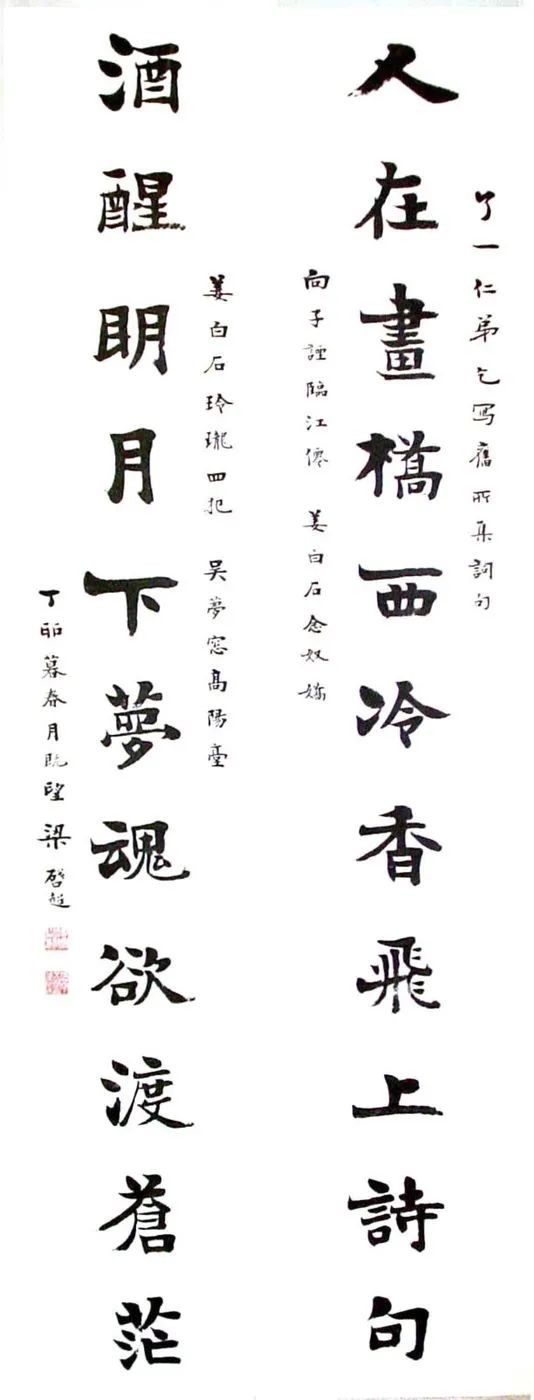 了一仁弟乞寫舊所集詞句
人在畫橋西冷香飛上詩句
向子諲臨江僊 姜白石念奴嬌
姜白石玲瓏四犯 吴夢窓高陽臺
酒醒眀月下夢魂欲渡蒼茫
丁卯暮春月既望 梁啓超